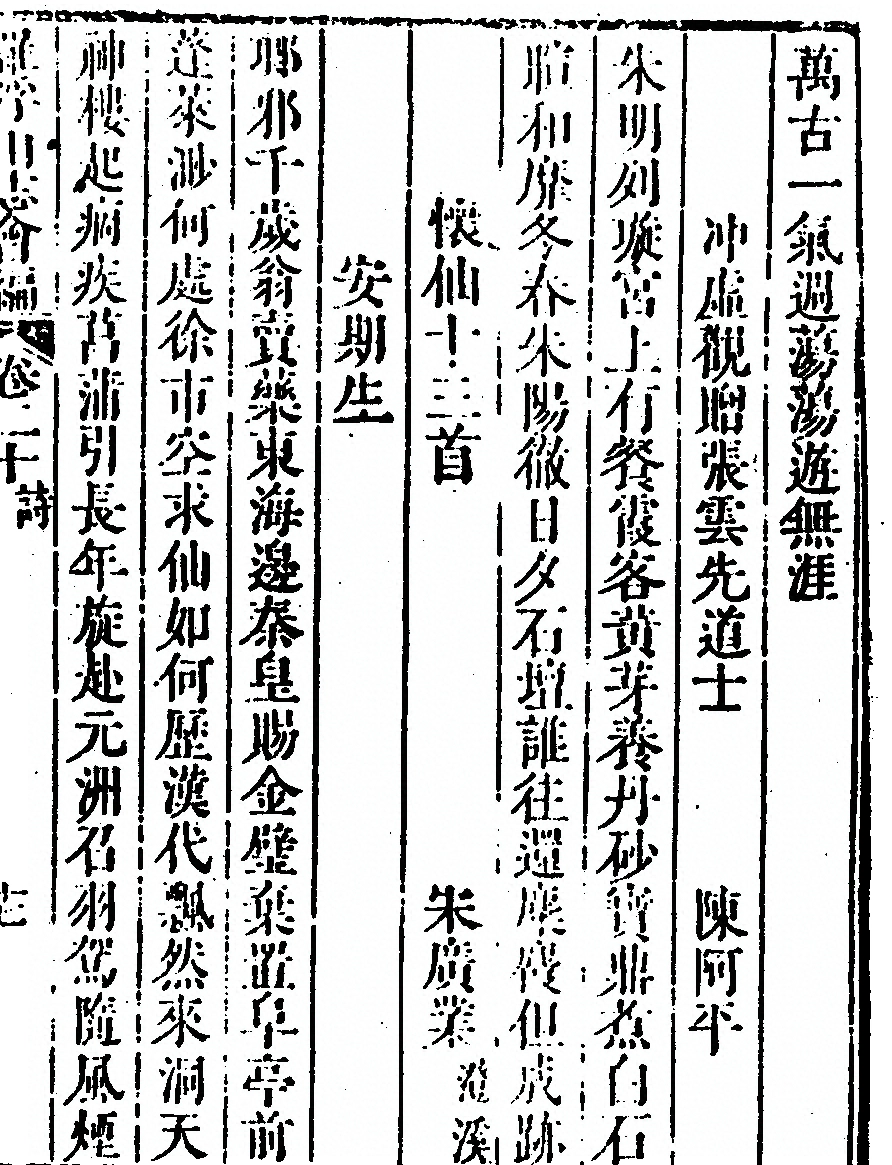 萬古一氣過蕩蕩遊無涯
冲虛觀贈張雲先道士 陳阿平
朱明列璇宮上有餐霞客黃芽養丹砂寶鼎煮白石
暄和靡冬春朱陽徹日夕石壇誰往還麋麚但成跡
懷仙十三首 朱廣業 澄溪
安期生
琊邪千歲翁賣藥東海邊秦皇賜金璧棄置阜亭前
蓬萊渺何處徐市空求仙如何歷漢代飄然來洞天
神樓起病疾菖蒲引長年旋赴元洲召羽駕隨風煙
羅浮山志會編 卷二十 詩